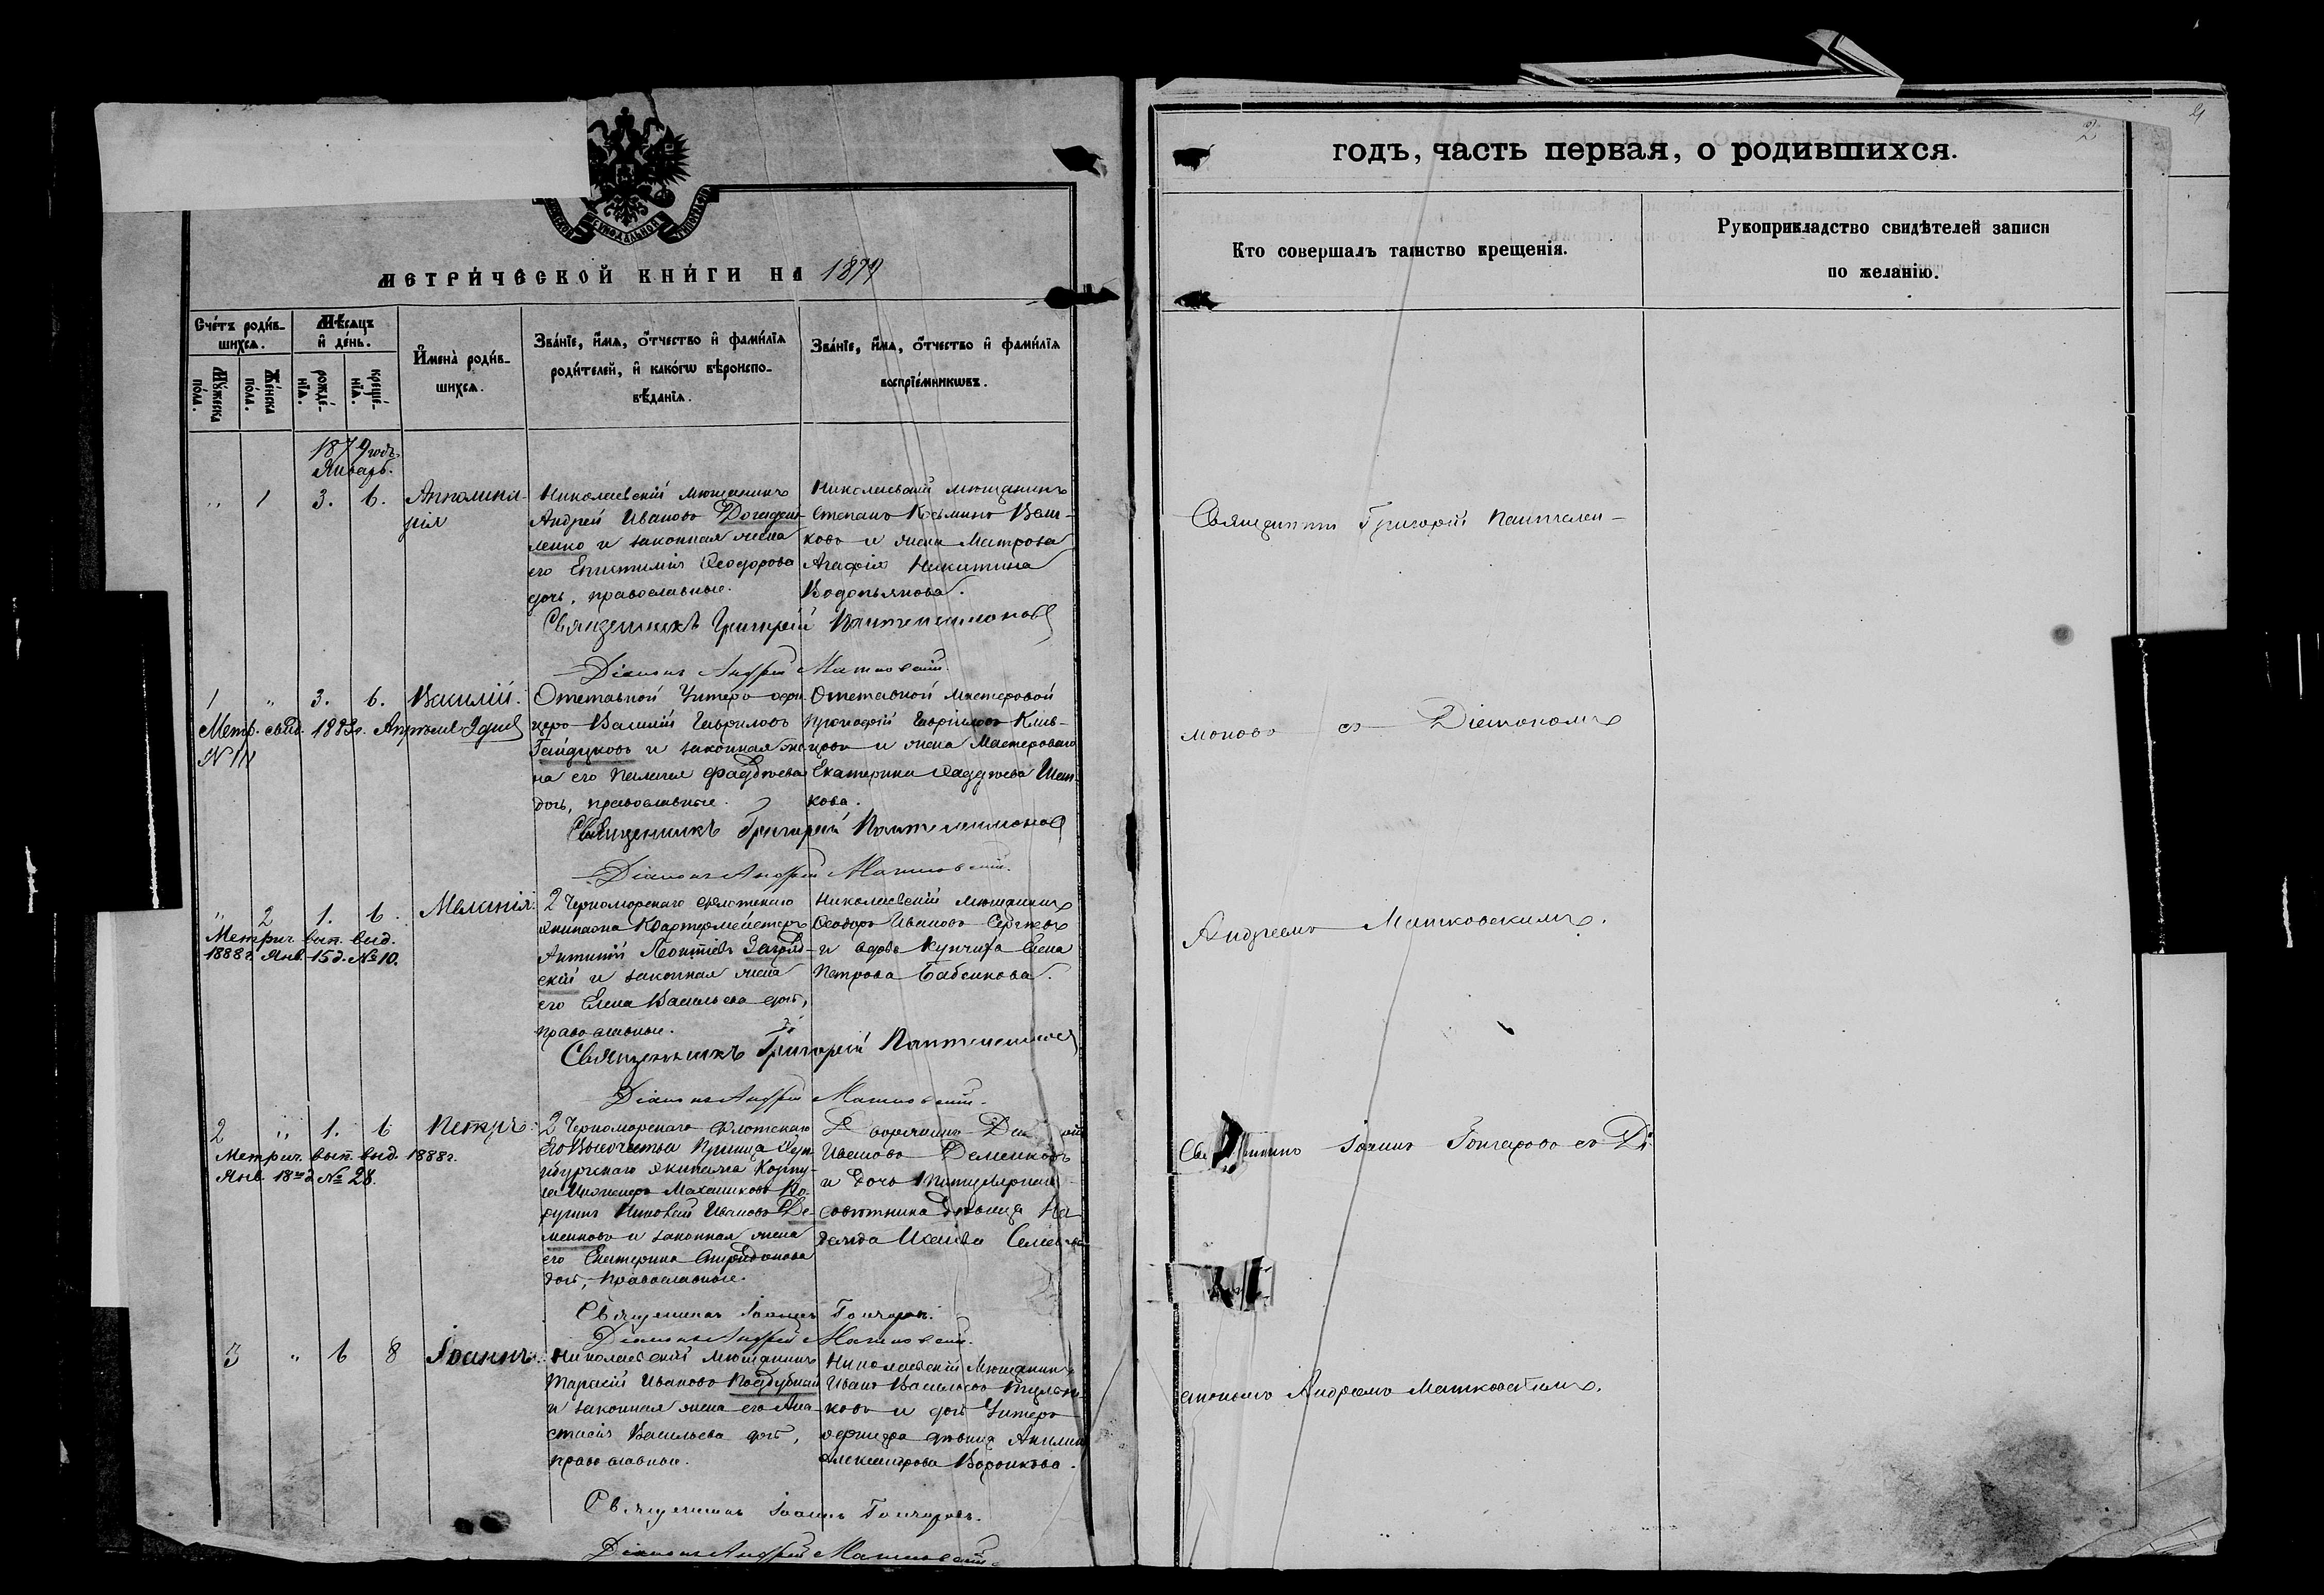 СѴНОДАЛЬНОЙ
МЕТРИ́ЧЕСКОЙ КНИ́ГИ НА 1879
Сче́тъ роди́в-
шихсѧ.
Мѣ́сѧцъ
и҆ де́нь.
Мꙋ́жеска
по́ла.
Же́нска
по́ла.
рожде́-
нїѧ.
креще́-
нїѧ.
И҆мена̀ роди́в-
шихсѧ.
Зва́нїе, и҆́мѧ, ѻ҆́тчество и҆ фами́лїѧ
роди́телей, и҆ како́гѡ вѣроиспо-
вѣ́данїѧ.
Зва́нїе, и҆́мѧ, ѻ҆́тчество и҆ фами́лїѧ
воспрїе́мникѡвъ.
1879 годъ
Январь.
„ 1 3. 6.
Апполина-
рія
Николаевскій мѣщанинъ
Андрей Ивановъ
ленко и законная жена
его Епистимія Ѳеодорова
дочь, православные.
Николаевскій мѣщанинъ
Степанъ Козьминъ
ковъ и жена Матроса
Агафія Никитина
Водопьянова.
Священникъ Григорій Пантелеимоновъ
Діаконъ Андрей Матковскій.
1 „ 3. 6.
Василій.
Метр. свид. 1883г. Апрѣля 2 дня
N 111
Отставной Унтеръ офи-
церъ Василій Гавриловъ
Гайдуковъ и законная же-
на его Пелагея Фаддѣева
дочь, православные.
Отставной мастеровой
Прокофій Гавріиловъ
цовъ и жена Мастероваго
Екатерина Фаддѣева
кова.
Священникъ Григорій Пантелеимоновъ
Діаконъ Андрей Матковскій.
„ 2 1. 6.
Меланія.
Метрич. вып. выд.
1888г. Янв. 15 д. № 10.
2 Черноморскаго флотскаго
экипажа Квартермейстеръ
Антоній Леонтіевъ
скій и законная жена
его Елена Васильева дочь,
православные.
Николаевскій мѣщанинъ
Ѳеодоръ Ивановъ
и вдова купчиха Елена
Петрова Бабенкова.
Священникъ Григорій Пантелеимоновъ
Діаконъ Андрей Матковскій.
2 „ 1. 6
Петръ.
Метрич. вып. выд. 1888г.
Янв. 18го д № 28.
2 Черноморскаго флотскаго
Его Высочества Принца Эдин-
бургскаго экипажа Корпу-
са Инженеръ Механиковъ По-
ручикъ Николай Ивановъ Де-
менковъ и законная жена
его Екатерина Спиридонова
дочь, православные.
Дворянинъ
Ивановъ Деменковъ
и дочь Титулярнаго
совѣтника дѣвица На-
дежда
Священникъ Іоаннъ Гончаровъ.
Діаконъ Андрей Матковскій.
3 „ 6 8
Іоаннъ.
Николаевскій мѣщанинъ
Тарасій Ивановъ Поддубный
и законная жена его Ана-
стасія Васильева дочь,
православные.
Николаевскій Мѣщанинъ
Иванъ Васильевъ
ковъ и дочь Унтеръ
офицера дѣвица Акилина
Александрова Воронкова.
Священникъ Іоаннъ Гончаровъ.
Діаконъ Андрей Матковскій.
2
годъ, часть первая, о родившихся.
Кто совершалъ таинство крещенія.
Рукоприкладство свидѣтелей записи
по желанію.
Священникъ Григорій Пантелеи-
моновъ съ Діакономъ
Андреемъ Матковскимъ.
Іоаннъ Гончаровъ съ Ді-
акономъ Андреемъ Матковскимъ.